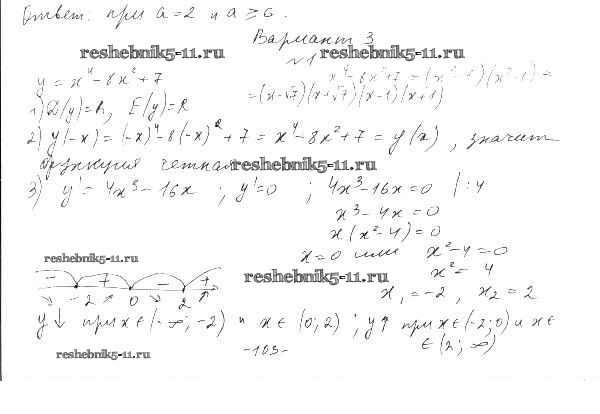 Ответ: при a = 2 и a ≥ 6.
Вариант 3
reshebnik5-11.ru reshebnik5-11.ru
№1
y = x⁴ - 8x² + 7
x⁴ - 8x² + 7 = (x² - 7)(x² - 1) =
= (x - √7)(x + √7)(x - 1)(x + 1)
1) D(y) = R, E(y) = R
2) y(-x) = (-x)⁴ - 8(-x)² + 7 = x⁴ - 8x² + 7 = y(x), значит
функция четная
reshebnik5-11.ru
3) y' = 4x³ - 16x ; y' = 0 ; 4x³ - 16x = 0 | : 4
x³ - 4x = 0
x(x² - 4) = 0
x = 0 или x² - 4 = 0
x² = 4
x₁ = -2, x₂ = 2
reshebnik5-11.ru
reshebnik5-11.ru
- + - +
↘ -2 ↗ 0 ↘ 2 ↗
y↓ при x ∈ (-∞; -2) и x ∈ (0; 2) ; y↑ при x ∈ (-2; 0) и x ∈
∈ (2; ∞)
-103-
reshebnik5-11.ru